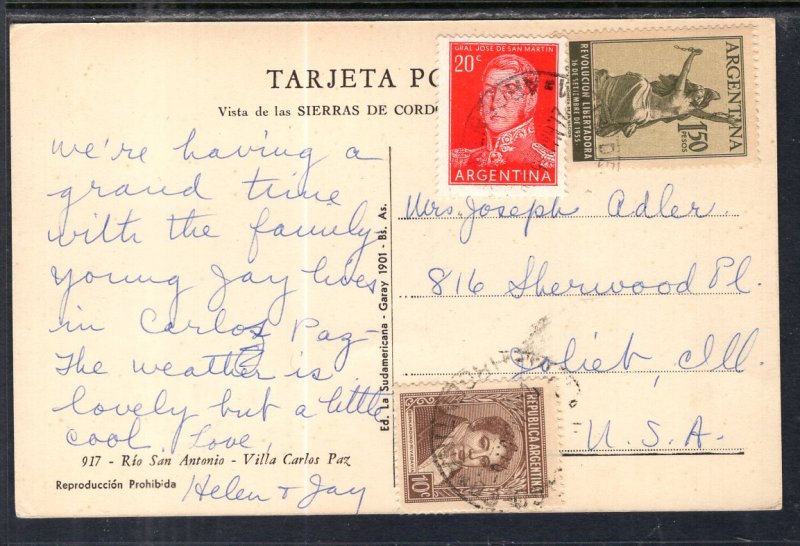 TARJETA PO
Vista de las SIERRAS DE CORDO
We're having a
grand time
with the family-
Young Jay lives
in Carlos Paz-
The weather is
lovely but a little
cool. Love,
Helen & Jay
917 - Río San Antonio - Villa Carlos Paz
Reproducción Prohibida
Ed. La Sudamericana - Garay 1901 - Bs. As.
GRAL JOSE DE SAN MARTIN
20c
ARGENTINA
ARGENTINA
REVOLUCION LIBERTADORA
16 DE SETIEMBRE DE 1955
1.50
PESOS
Mrs. Joseph Adler
816 Sherwood Pl.
Joliet, Ill.
U.S.A.
REPUBLICA ARGENTINA
10c